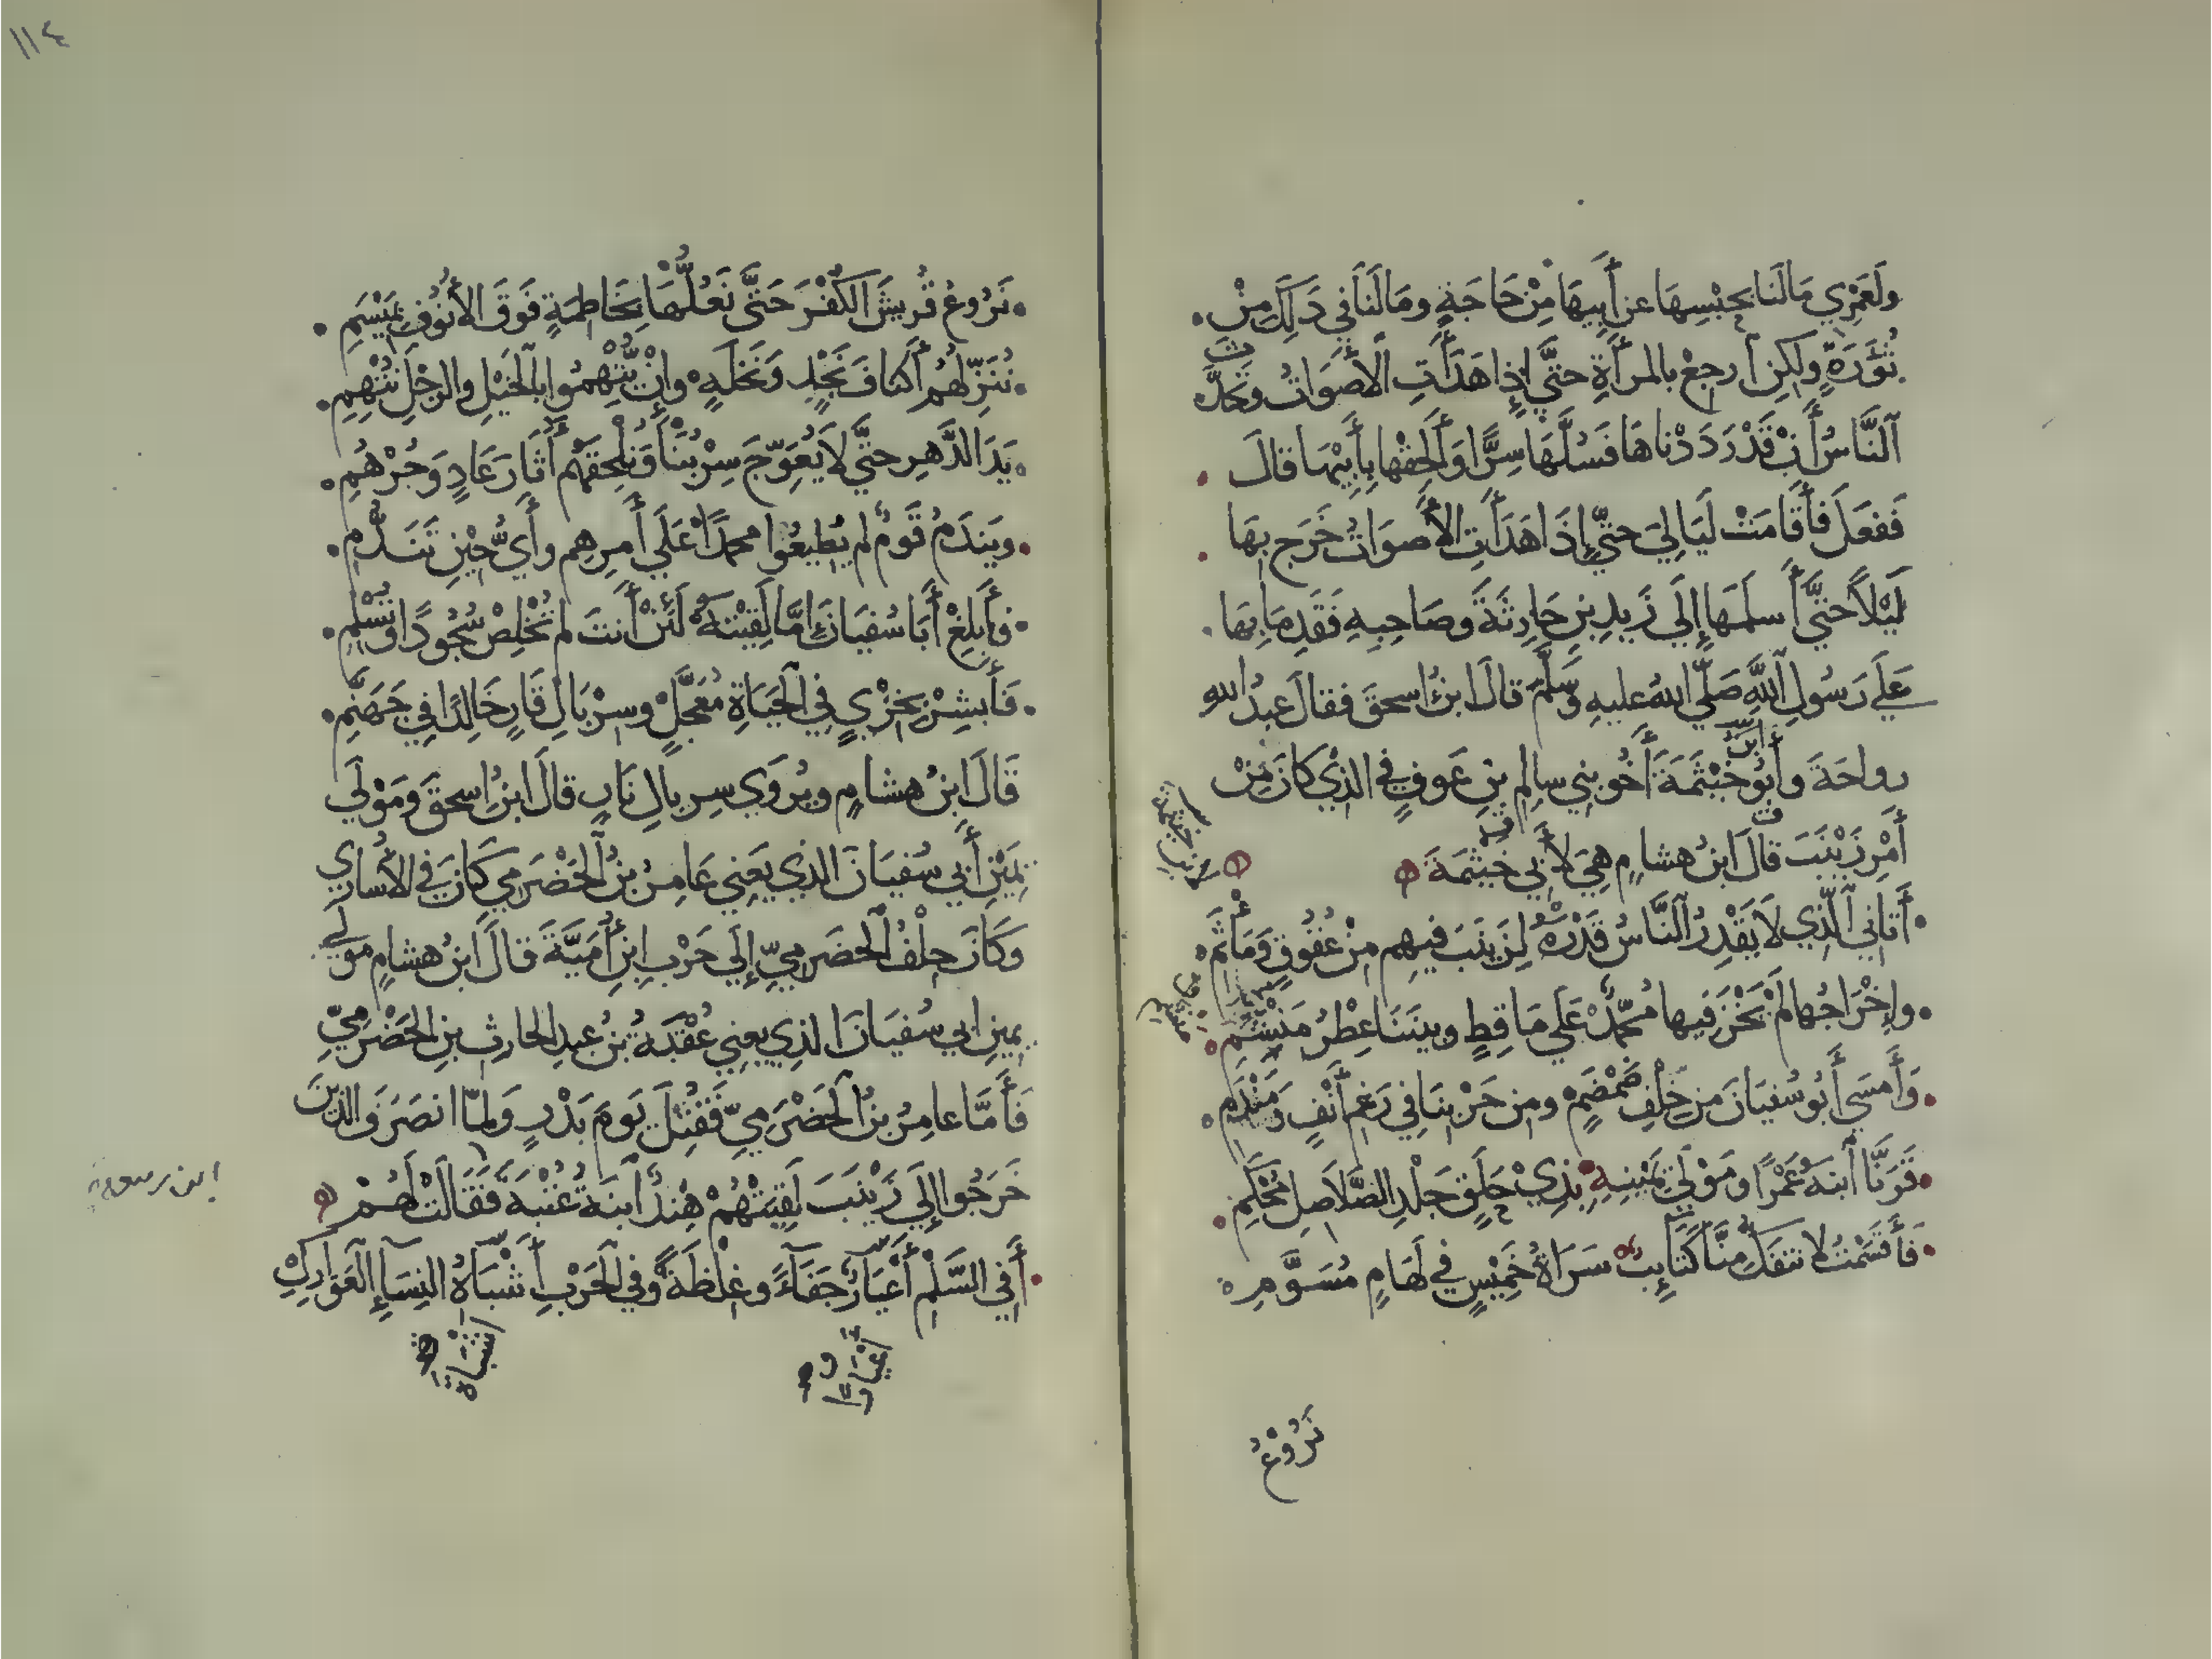 ولَعَمْرِي مَا لَنَا بحَبْسِهَا عن أَبِيهَا مِنْ حَاجَةٍ ومَا لَنَا في ذَلِكَ مِنْ
ثُؤَرَةٍ ولكِن ارجِعْ بالمرأَةِ حتَّي إذا هَدَأَتِ الأَصوَاتُ وتحَدَّث
النَّاسُ أَنْ قَدْ رَدَدْناهَا فَسُلَّهَا سِرًّا وَأَلْحِقْها بِأَبِيْهَا قالَ
ففعَلَ فأَقَامَتْ لَيَالِيَ حتَّي إذَا هَدَأَتِ الأَصوَاتُ خَرَج بهَا
لَيْلاً حتَّي أَسلَمَها إلَي زَيدِ بنِ حَارِثَةَ وصَاحِبِهِ فَقَدِمَا بِهَا
عَلَي رَسُولِ اللَّهِ صَلَّي اللهُ عليهِ وَسَلَّمَ قالَ ابنُ اسحقَ فقالَ عبدُ الله
ابن
رواحَةَ وأَبُو خَيْثَمَةَ أَخُو بني سالِم بنِ عَوفٍ في الذي كانَ مِنْ
أَمْرِ زَيْنَبَ قالَ ابنُ هشامٍ هِيَ لأَبي خَيْثَمَةَ
أَتَاني الَّذي لاَ يَقْدِرُ النَّاسُ قَدْرَهُ لِزَيْنَبَ فيهِم مِنْ عُقُوقٍ وَمَأْثَمِ
وإخْرَاجُها لَمْ يُخْزَ فيها مُحمَّدٌ عَلَي مَاقِطٍ وبينَنَا عِطْرُ مَنْشِمِ
وَأَمسَي أَبُو سُفيَانَ مِن حِلْفِ ضَمْضَمٍ ومِن حَرْبِنَا في رَغمِ أَنْفٍ ومَنْدَمِ
قَرَنَّا ابنَهُ عَمْرًا ومَوْلَي يَمْينِهِ بِذِيْ حَلَقٍ جَلْدِ الصَّلاَصِلِ مُحْكَمِ
فَأَقسَمْتُ لا تنفَكُّ مِنَّا كَتَايِبٌ سَرَاةُ خَمِيْسٍ في لُهَامٍ مُسَوَّمِ
نَرُوعُ
١١٤
نَرُوعُ قُريشَ الكُفْرَ حَتَّى نَعُلَّهَا بخَاطِمَةٍ فَوقَ الأنُوفِ بمَيْسَمِ
نُنَزِّلهُم أَكنَافَ نَجْدٍ وَنَخلَةٍ وإِنْ يُتْهِمُوا بالخَيْلِ والرجْلِ نُتْهِمِ
يَدَ الدَّهرِ حتَّي لاَ يُعَوِّجَ سِرْبُنَا ونُلْحِقَهُم أَثَارَ عَادٍ وَجُرْهُمِ
ويَندَمُ قَومٌ لم يُطِيعُوا محمدًا عَلَي أَمرِهِم وأَيُّ حيْنِ تَنَدُّمِ
فأَبلِغْ أَبَا سُفيَانَ إمَّا لَقِيْتَهُ لَئِنْ أَنتَ لم تُخْلِصْ سُجُودًا وتُسْلِمِ
فَأَبشِرْ بخِزْيٍ في الحَيَاةِ مُعَجَّلٍ وسِرْبَالِ قَارٍ خَالِدًا في جَهَنَّمِ
قَالَ ابنُ هشامٍ ويُروَي سِربالِ نَارٍ قالَ ابنُ اسحقَ ومَوْلَي
يَمِيْنِ أَبي سُفيَانَ الذي يَعني عَامِرُ بنُ الحَضْرَمي كَانَ في الأُسَارَي
وَكَانَ حِلْفُ الحَضرَمِيِّ إلَي حَرْبِ ابنِ أُمَيَّةَ قالَ ابنُ هشامٍ مولَي
يمينِ ابي سُفيَانَ الذِي يعني عُقْبَةُ بنُ عبدِ الحارثِ بنِ الحَضْرَمِيّ
فَأَمَّا عامِرُ بنُ الحَضْرَمِيِّ فَقُتِلَ يَومَ بَدْرٍ وَلمَّا انصَرَفَ الذينَ
خَرَجُوا إلَي زَيْنَبَ لَقِيَتْهُمْ هِنْدُ ابنَةُ عُتْبَةَ فَقَالَتْ لَهُمْ
أَفي السَّلْمِ أَعْيَارٌ جَفَآءً وغِلظَةً وفي الحَرْبِ أَشْبَاهُ النِسَآءِ العَوَارِكِ
أعْيَارًا
أشْبَاهَ